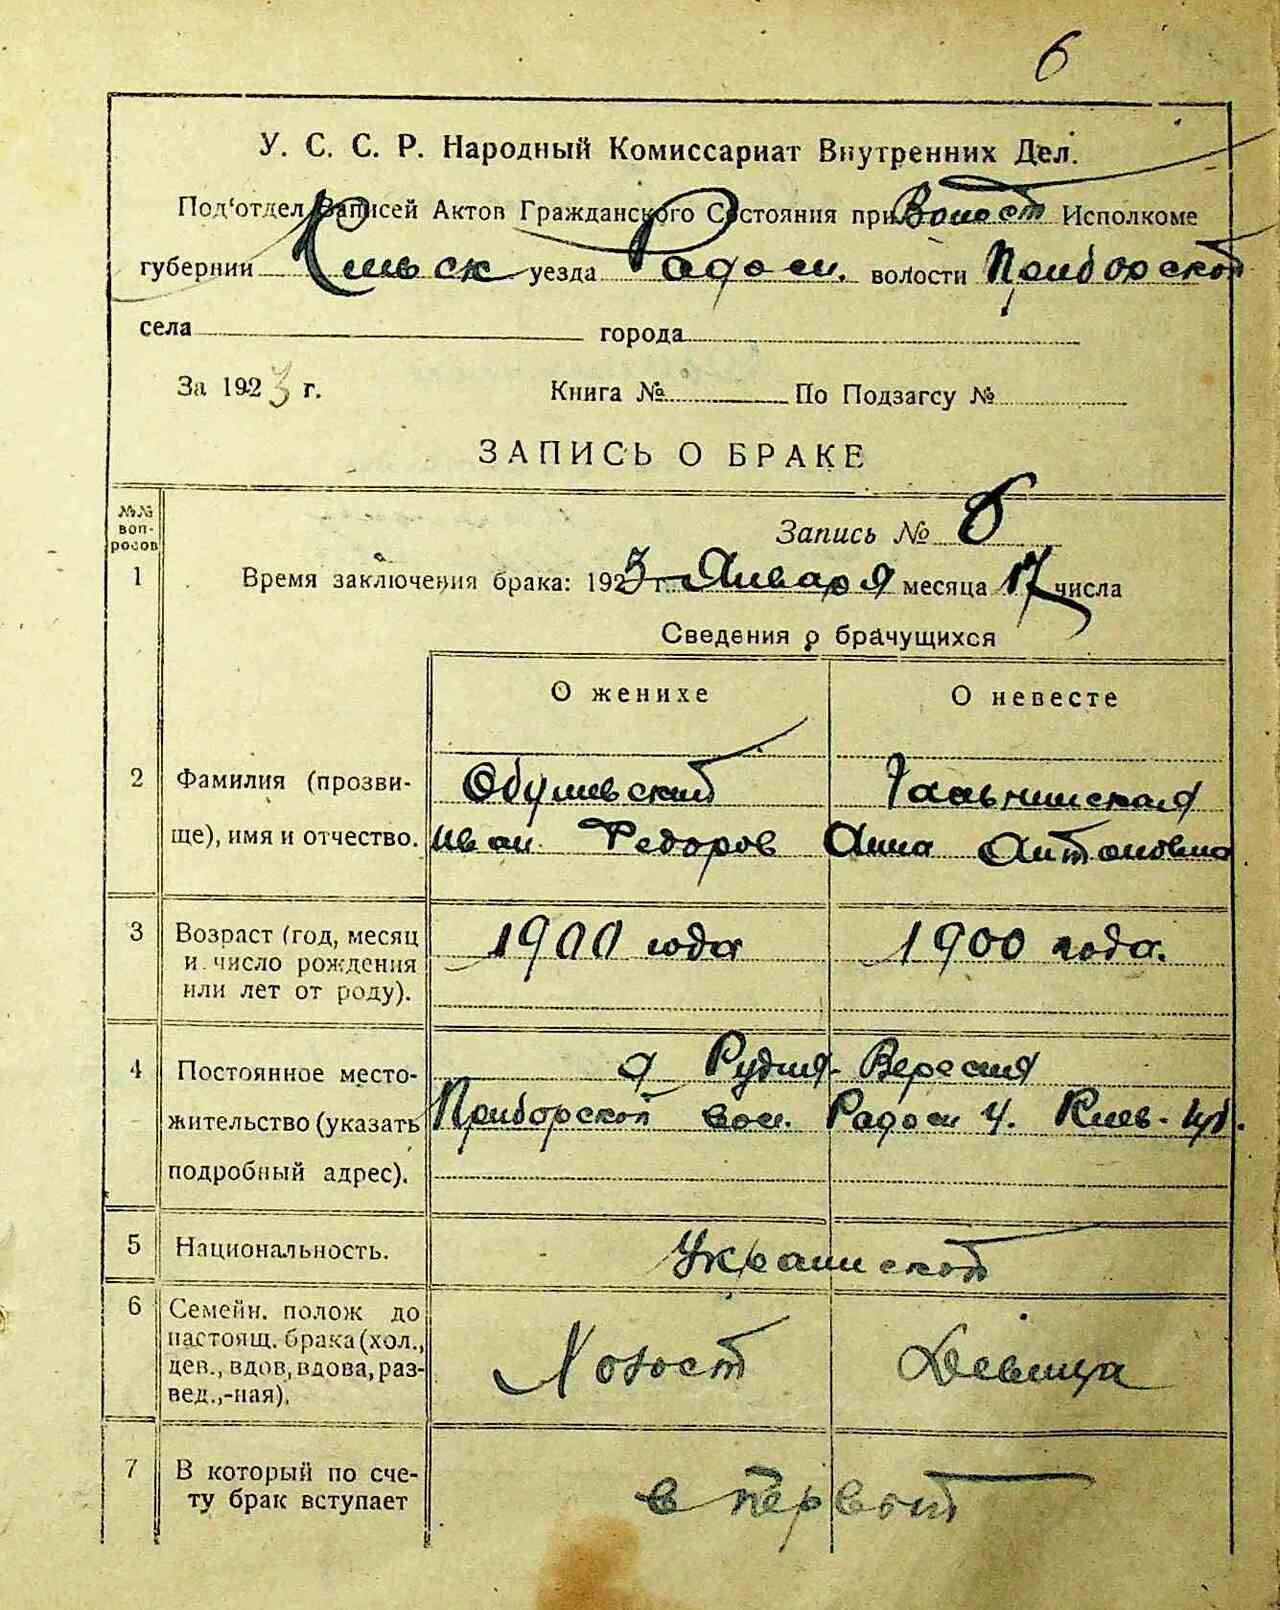 6
У. С. С. Р. Народный Комиссариат Внутренних Дел.
Под‘отдел Записей Актов Гражданского Состояния при Волост Исполкоме
губернии Киевск уезда Радом. волости Приборской
села города
За 1923 г. Книга № По Подзагсу №
ЗАПИСЬ О БРАКЕ
№№ вопросов
Запись № 6
1 Время заключения брака: 1923 г. Января месяца 17 числа
Сведения о брачущихся
О женихе О невесте
2 Фамилия (прозви- Обушевский
ще), имя и отчество. Иван Федоров Анна Антоновна
3 Возраст (год, месяц 1900 года 1900 года.
и число рождения
или лет от роду).
4 Постоянное место- д Рудня-Вересня
жительство (указать Приборской вол. Радом у. Киев-губ.
подробный адрес).
5 Национальность. Украинской
6 Семейн. полож до
настоящ. брака (хол., Холост Девица
дев., вдов, вдова, раз-
вед.,-ная).
7 В который по сче- в первый
ту брак вступает